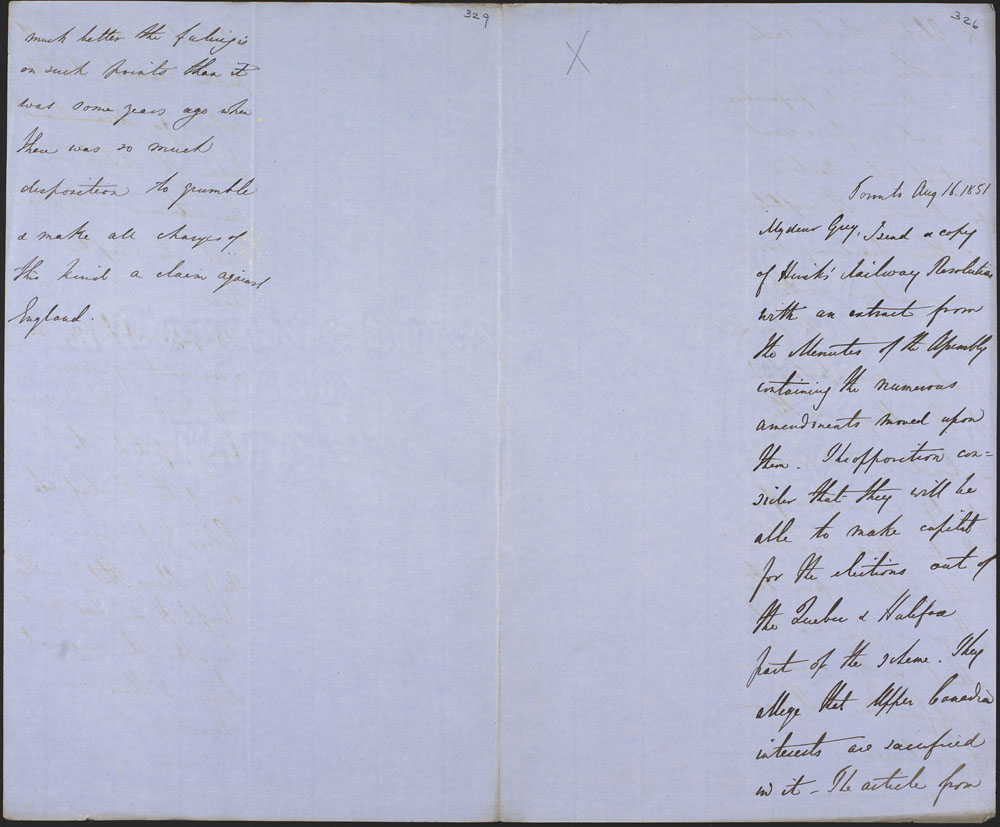 329
much better the feeling is
on such points than it
was some years ago when
there was so much
disposition to grumble
& make all charges of
this kind a claim against
England.
326
X
Toronto Aug 16. 1851
My dear Grey, I send a copy
of Hincks' Railway Resolutions
with an extract from
the Minutes of the Assembly
containing the numerous
amendments moved upon
them - The opposition con=
sider that they will be
able to make capital
for the elections out of
the Quebec & Halifax
part of the scheme. They
allege that Upper Canadian
interests are sacrificed
in it - The article from